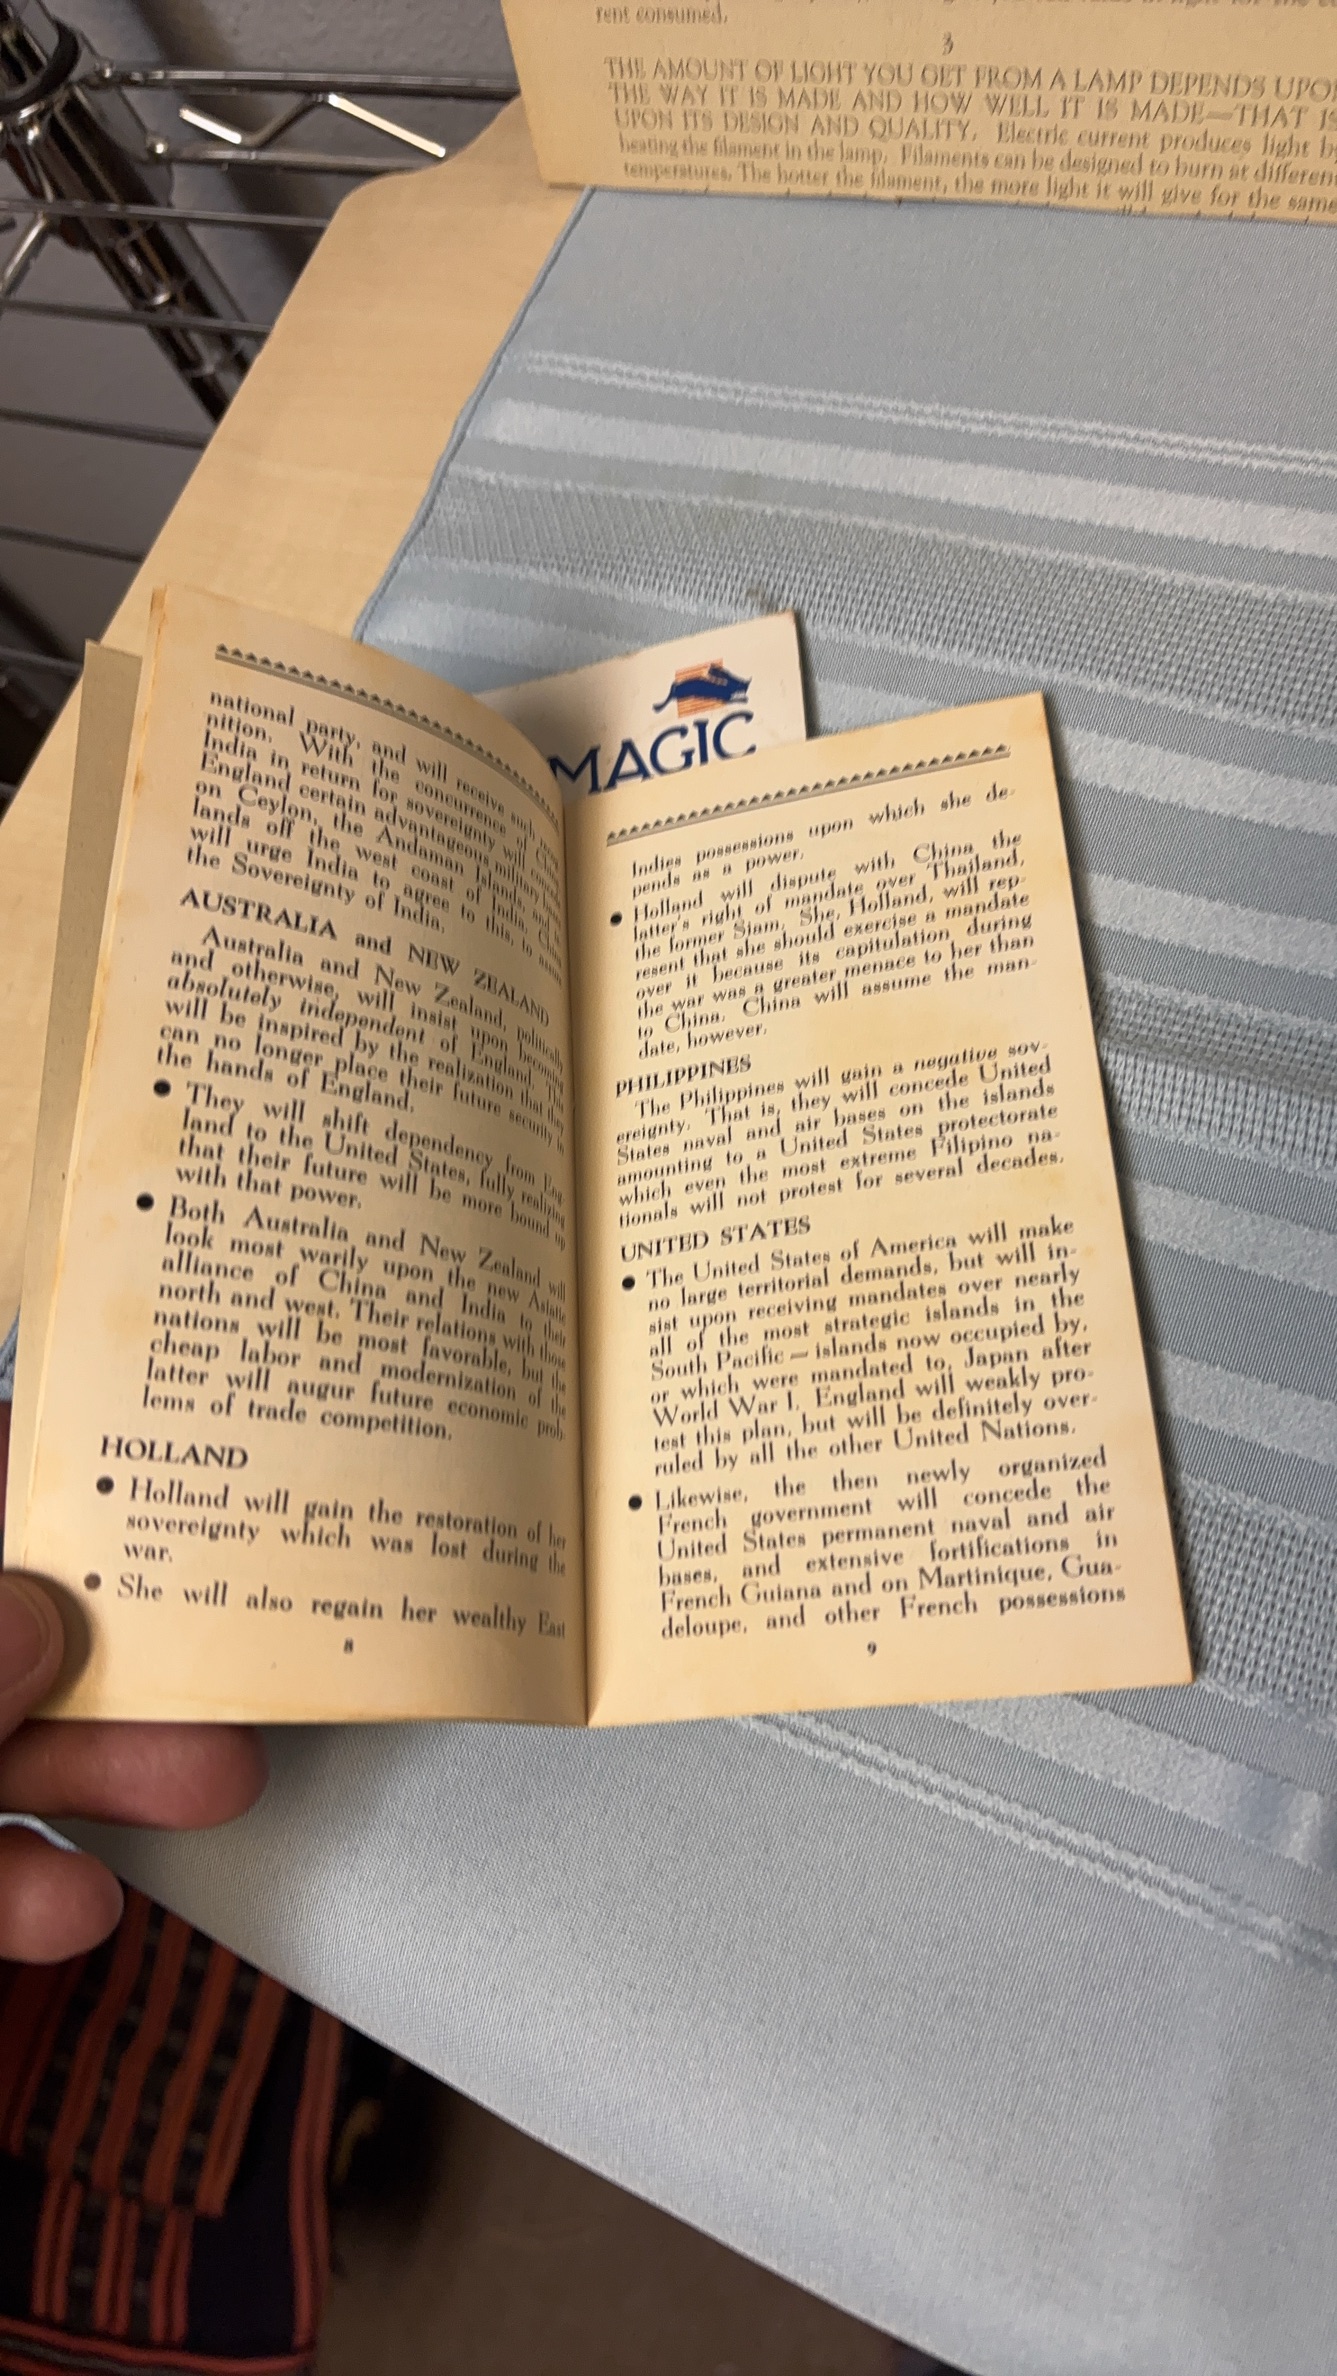 rent consumed.
3
THE AMOUNT OF LIGHT YOU GET FROM A LAMP DEPENDS UPON
THE WAY IT IS MADE AND HOW WELL IT IS MADE—THAT IS
UPON ITS DESIGN AND QUALITY. Electric current produces light by
heating the filament in the lamp. Filaments can be designed to burn at different
temperatures. The hotter the filament, the more light it will give for the same
MAGIC
national party, and will receive such
nition. With the concurrence of
India in return for sovereignty will
England certain advantageous military
on Ceylon, the Andaman Islands, and
lands off the west coast of India. China
will urge India to agree to this, to
the Sovereignty of India.
AUSTRALIA and NEW ZEALAND
Australia and New Zealand, politically
and otherwise, will insist upon becoming
absolutely independent of England. This
will be inspired by the realization that they
can no longer place their future security in
the hands of England.
● They will shift dependency from Eng-
land to the United States, fully realizing
that their future will be more bound up
with that power.
● Both Australia and New Zealand will
look most warily upon the new Asiatic
alliance of China and India to their
north and west. Their relations with those
nations will be most favorable, but the
cheap labor and modernization of the
latter will augur future economic prob-
lems of trade competition.
HOLLAND
● Holland will gain the restoration of her
sovereignty which was lost during the
war.
● She will also regain her wealthy East
8
Indies possessions upon which she de-
pends as a power.
● Holland will dispute with China the
latter's right of mandate over Thailand,
the former Siam. She, Holland, will rep-
resent that she should exercise a mandate
over it because its capitulation during
the war was a greater menace to her than
to China. China will assume the man-
date, however.
PHILIPPINES
The Philippines will gain a negative sov-
ereignty. That is, they will concede United
States naval and air bases on the islands
amounting to a United States protectorate
which even the most extreme Filipino na-
tionals will not protest for several decades.
UNITED STATES
● The United States of America will make
no large territorial demands, but will in-
sist upon receiving mandates over nearly
all of the most strategic islands in the
South Pacific — islands now occupied by,
or which were mandated to, Japan after
World War I. England will weakly pro-
test this plan, but will be definitely over-
ruled by all the other United Nations.
● Likewise, the then newly organized
French government will concede the
United States permanent naval and air
bases, and extensive fortifications in
French Guiana and on Martinique, Gua-
deloupe, and other French possessions
9